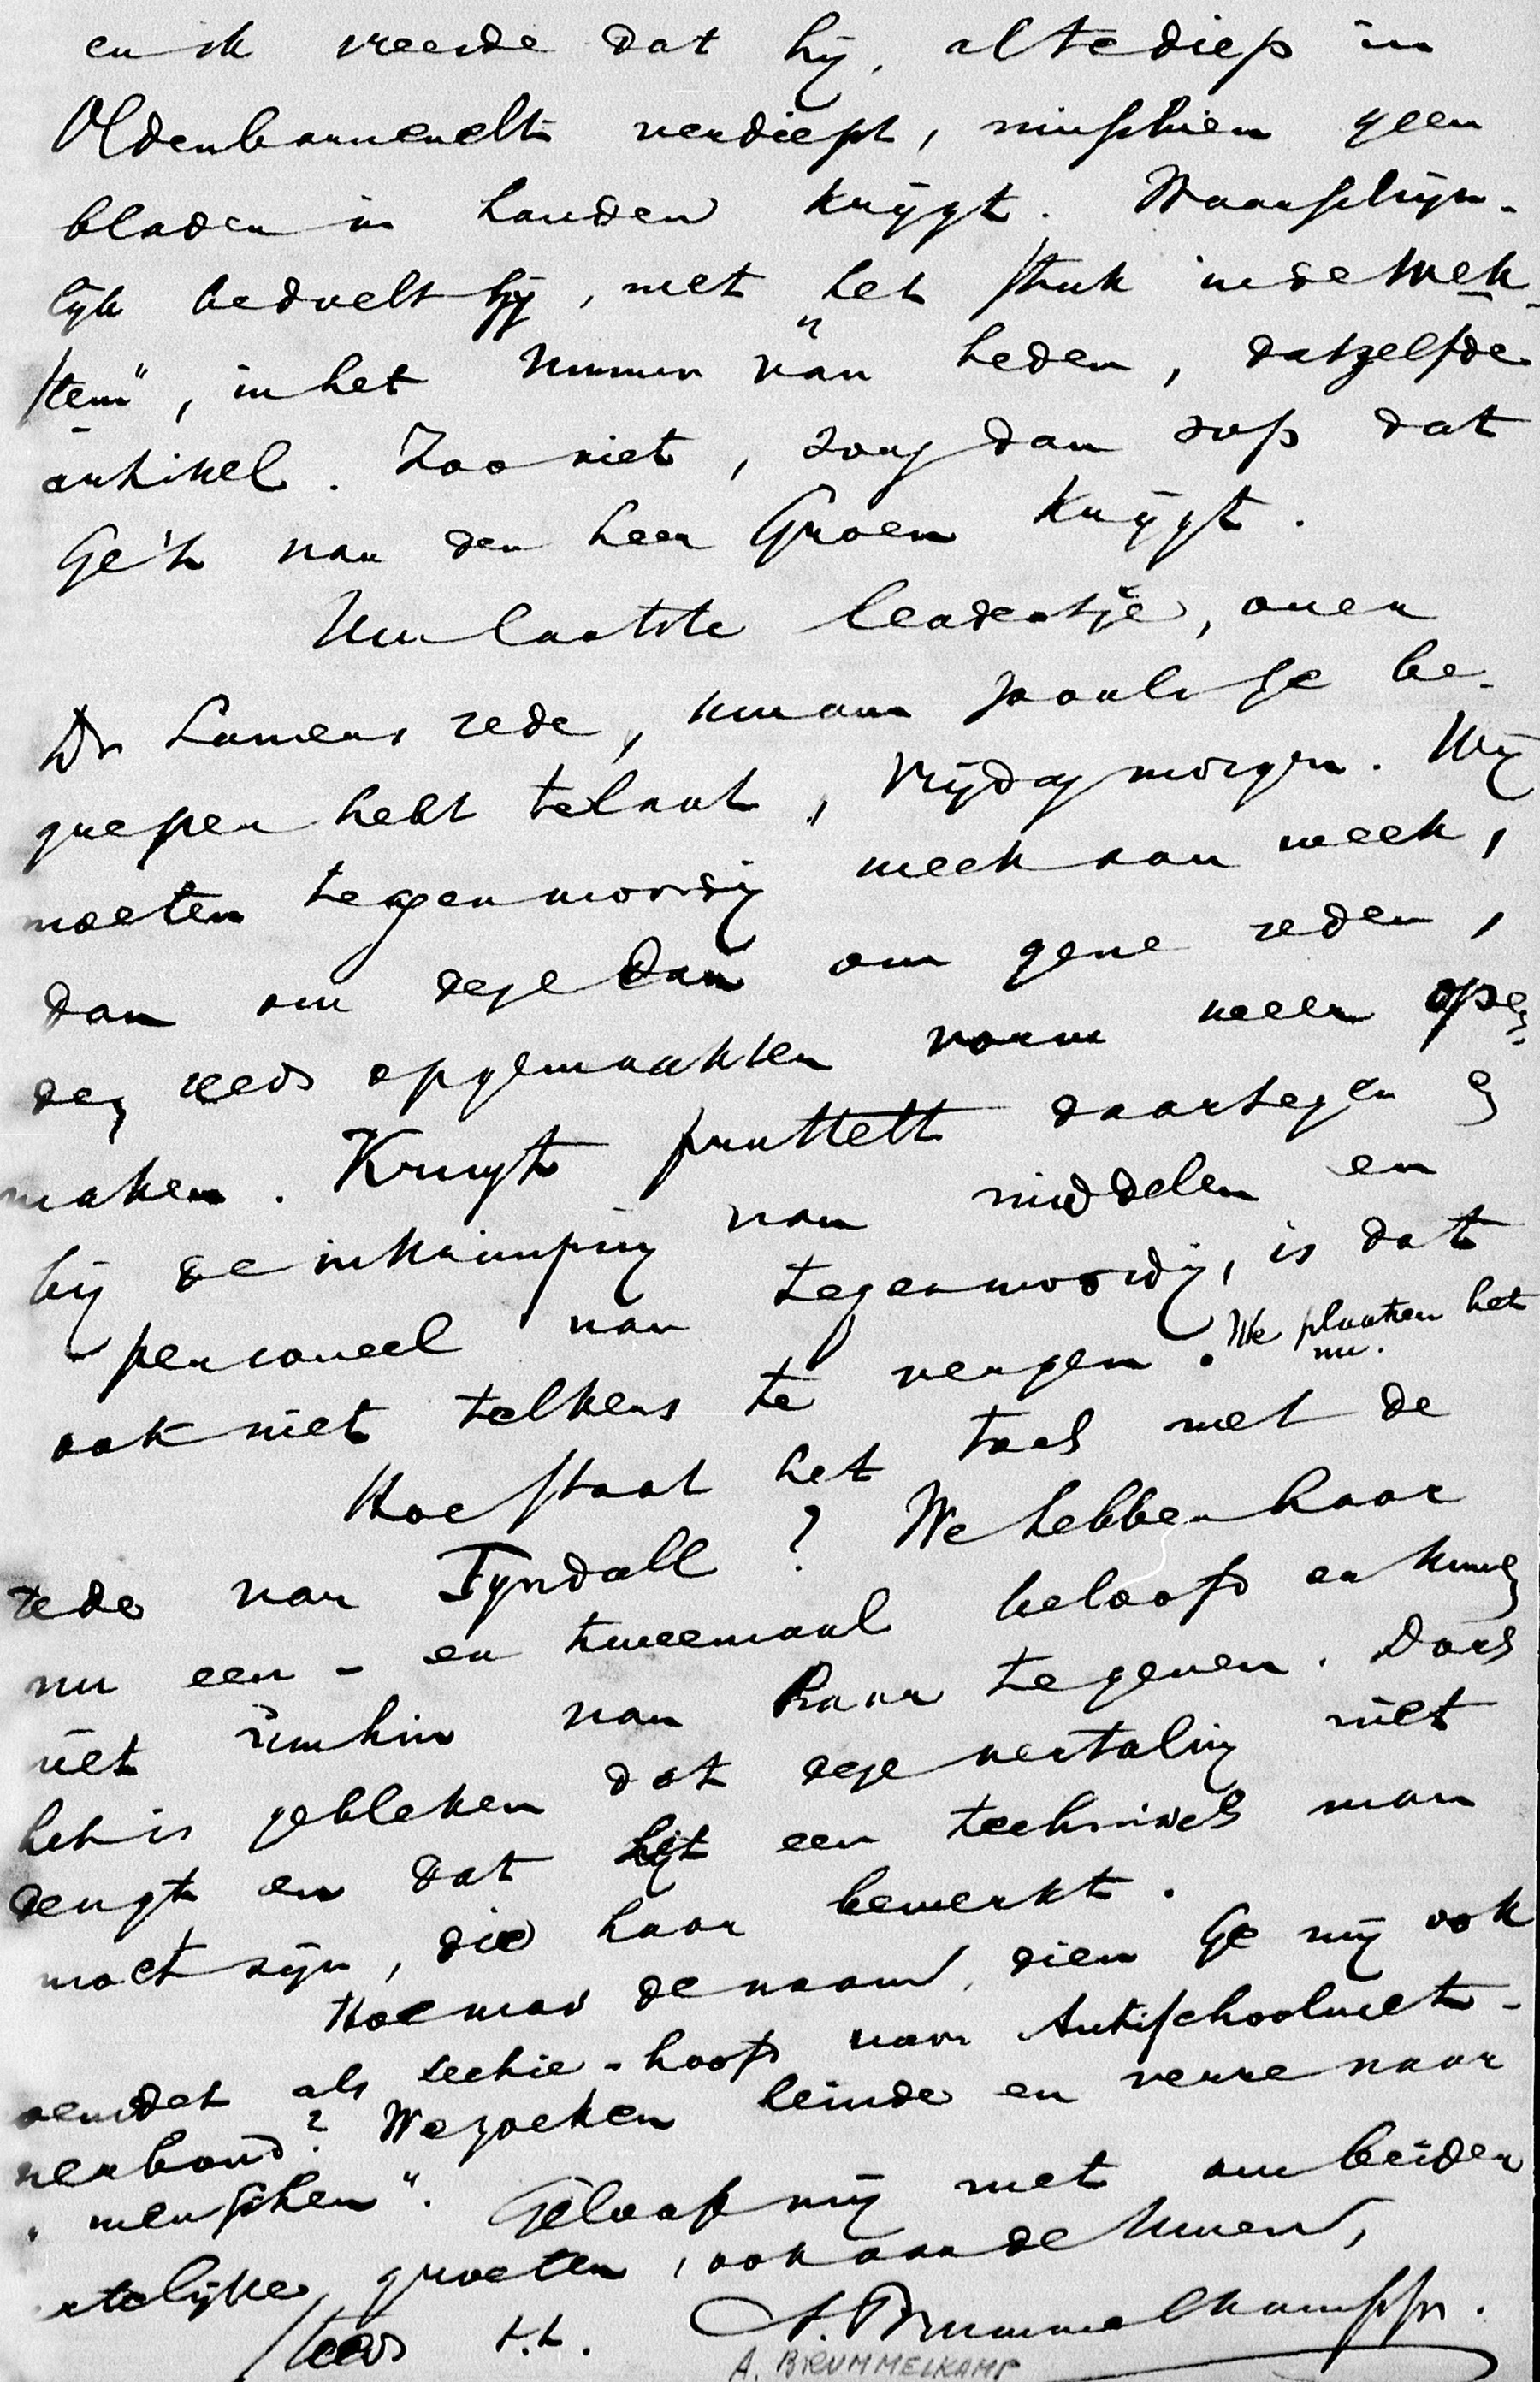 en ik vreesde dat hij, al te diep in
Oldenbarnevelt verdiept, misschien geen
bladen in handen krijgt. Waarschijn-
lijk bedoelt hij, met het stuk in de Wek-
stem", in het nummer van heden, datzelfde
artikel. Zoo niet, zorg dan svp dat
Ge 't van den heer Groen krijgt.
Uw laatste leadertje, over
Dr Lamens rede, kwam zooals ge be-
grepen hebt te laat, Vrijdagmorgen. Wij
moeten tegenwoordig week aan week,
dan om deze dan om gene reden,
den reeds opgemaakten vorm weer open
maken. Kruyt pruttelt daartegen en
bij de inkrimping van middelen en
personeel van tegenwoordig, is dat
ook niet telkens te vergen. We plaatsen het
nu.
Hoe staat het toch met de
rede van Tyndall? We hebben haar
nu een- en tweemaal beloofd en kunnen
niet omhin van haar te geven. Doch
het is gebleken dat deze vertaling niet
deugt en dat het een technisch man
moet zijn, die haar bewerkt.
Hoe was de naam, dien Ge mij ook
zendet als sectie-hoofd van Antischoolwet-
verbond? We zoeken heinde en verre naar
"menschen". Geloof mij met ons beider
rtelijke groeten, ook aan de Uwen,
steeds t.t. A. Brummelkamp Jr.
A. BRUMMELKAMP